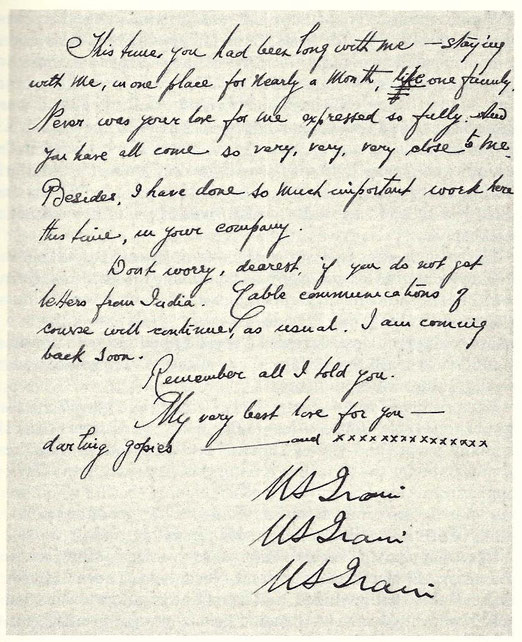 This time, you had been long with me — staying
with me, in one place for nearly a month, like one family.
Never was your love for me expressed so fully. And
you have all come so very, very, very close to me.
Besides, I have done so much important work here
this time, in your company.
Dont worry, dearest, if you do not get
letters from India. Cable communications of
course will continue, as usual. I am coming
back soon.
Remember all I told you.
My very best love for you —
darling gopies ——— and xxxxxxxxxxxxxxx
M S Irani
M S Irani
M S Irani